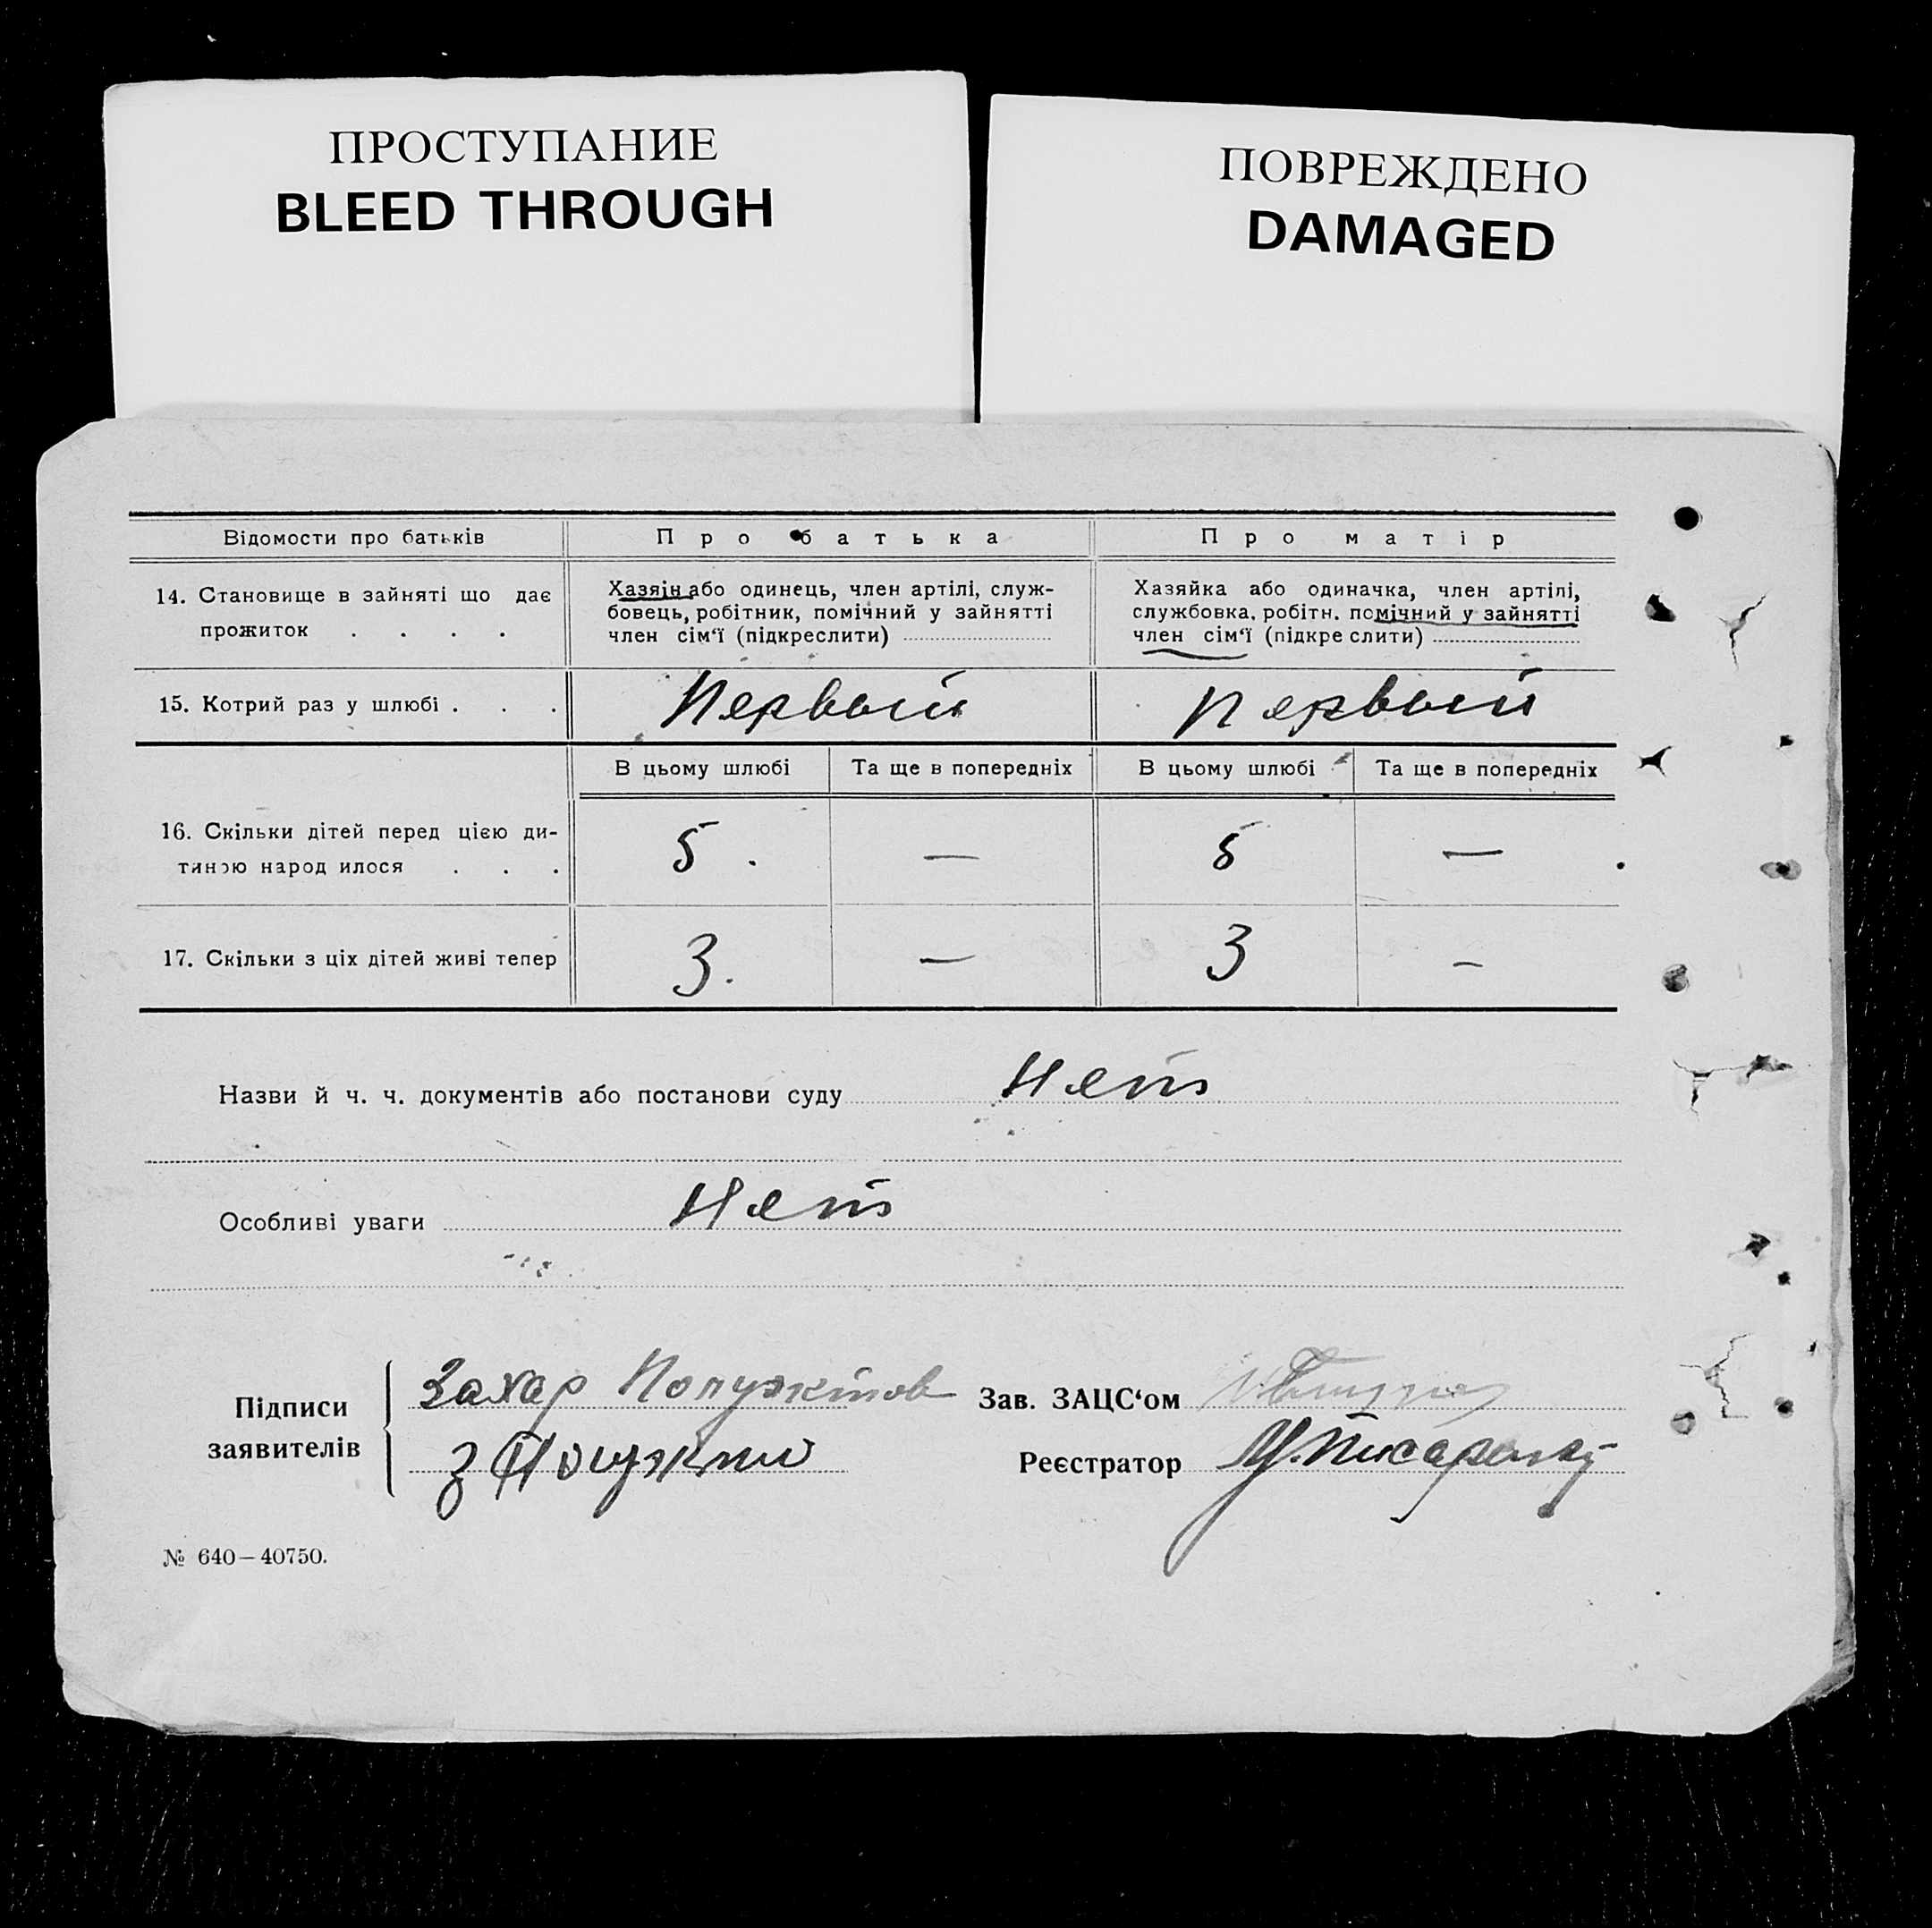 ПРОСТУПАНИЕ
BLEED THROUGH
ПОВРЕЖДЕНО
DAMAGED
Відомости про батьків
Про батька
Про матір
14. Становище в зайняті що дає
прожиток . . . .
Хазяін або одинець, член артілі, служ-
бовець, робітник, помічний у зайнятті
член сім‘ї (підкреслити)
Хазяйка або одиначка, член артілі,
службовка, робітн. помічний у зайнятті
член сім‘ї (підкреслити)
15. Котрий раз у шлюбі . . .
Первый
Первый
В цьому шлюбі
Та ще в попередніх
В цьому шлюбі
Та ще в попередніх
16. Скільки дітей перед цією ди-
тиною народилося . . .
5.
—
5
—
17. Скільки з ціх дітей живі тепер
3.
—
3
—
Назви й ч. ч. документів або постанови суду Нет
Особливі уваги Нет
Підписи
заявителів
Захар
Зав. ЗАЦС‘ом
Реєстратор
№ 640—40750.